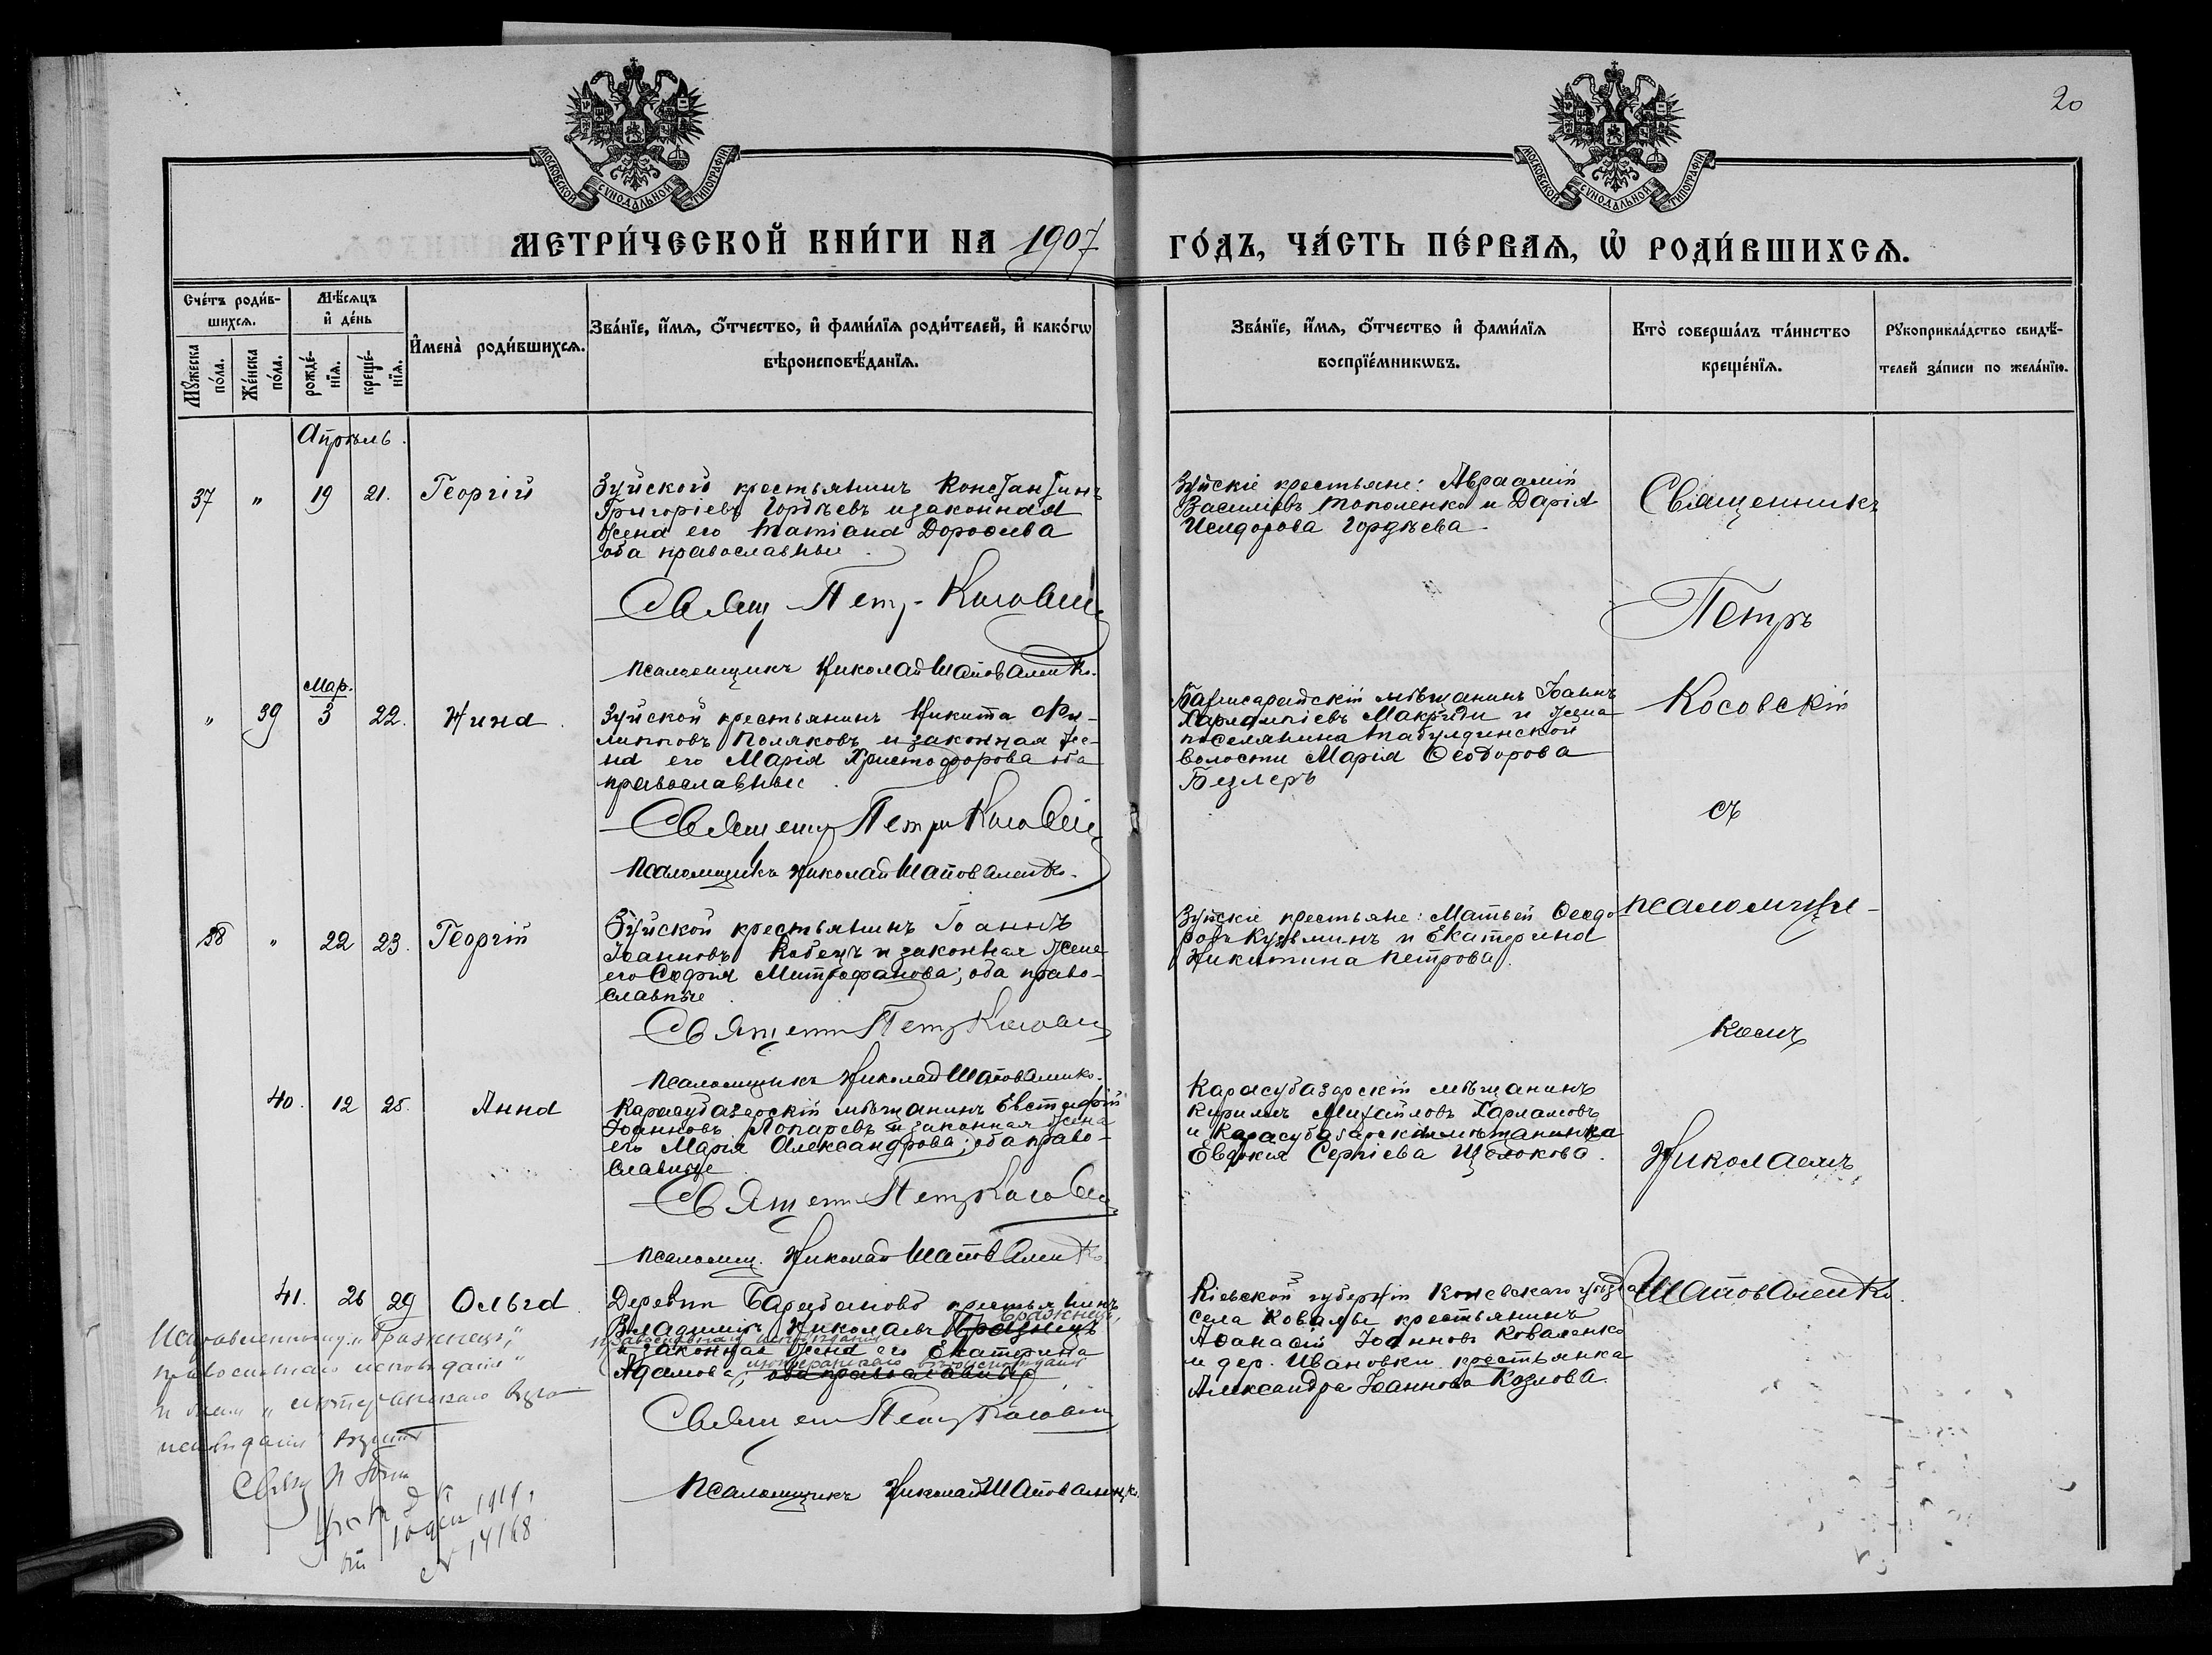 20
МОСКОВСКОЙ СѴНОДАЛЬНОЙ ТИПОГРАФІИ
МОСКОВСКОЙ СѴНОДАЛЬНОЙ ТИПОГРАФІИ
МЕТРИ́ЧЕСКОЙ КНИ́ГИ НА 1907 ГО́ДЪ, ЧА́СТЬ ПЕ́РВАѦ, Ѡ҆ РОДИ́ВШИХСѦ.
Сче́тъ роди́в-
шихсѧ.
Мꙋжеска по́ла.
Же́нска по́ла.
Мѣ́сѧцъ
и҆ де́нь
рожде́-
нїѧ.
креще́-
нїѧ.
И҆мена̀ роди́вшихсѧ.
Зва́нїе, и҆́мѧ, ѻ҆́тчество, и҆ фами́лїѧ роди́телей, и҆ како́гѡ
вѣроисповѣ́данїѧ.
Зва́нїе, и҆́мѧ, ѻ҆́тчество и҆ фами́лїѧ
воспрїе́мникѡвъ.
Кто̀ соверша́лъ та́инство
креще́нїѧ.
Рꙋкоприкла́дство свидѣ́-
телей за́писи по жела́нїю.
Апрѣль.
37 " 19 21. Георгій
Зуйской крестьянинъ Константинъ
Григоріевъ Гордѣевъ и законная
жена его Татіана Дороѳеева
оба православные.
Свящ Петр Косовскій
псаломщикъ Николай Шаповаленко.
Зуйскіе крестьяне: Авраамій
Василіевъ Тополенко и Дарія
Исидорова Гордѣева.
Священникъ
Петръ
Косовскій
съ
псаломщи-
комъ
Николаемъ
Шаповаленко.
Мар.
" 39 3 22. Нина.
Зуйской крестьянинъ Никита Фи-
липповъ Поляковъ и законная же-
на его Марія Христофорова оба
православные.
Священ Петръ Косовскій
Псаломщикъ Николай Шаповаленко.
Бахчисарайскій мѣщанинъ Іоаннъ
Харлампіевъ Макриди и жена
поселянина Табулдинской
волости Марія Ѳеодорова
Безлеръ
38 " 22 23. Георгій
Зуйской крестьянинъ Іоаннъ
Іоанновъ Кобецъ и законная жена
его Софія Митрофанова; оба право-
славные.
Священ Петр Косовскій
Псаломщикъ Николай Шаповаленко.
Зуйскіе крестьяне: Матѳей Ѳеодо-
ровъ Кузьминъ и Екатерина
Никитина Петрова.
40. 12 25. Анна
Карасубазарскій мѣщанинъ Евстафій
Іоанновъ Лопаревъ и законная жена
его Марія Александрова; оба право-
славные.
Священ Петр Косовскій
Псаломщ. Николай Шаповаленко
Карасубазарскій мѣщанинъ
Кириллъ Михайловъ Харламовъ
и Карасубазарская мѣщанинка
Евдокія Сергіева Щелокова.
41. 26 29 Ольга.
Деревни Барабановой крестьянинъ
Бражнецъ,
Владимиръ Николаевъ
православнаго исповѣданія
и законная жена его Екатерина
лютеранскаго вѣроисповѣданія
Адамова; оба православные.
Священ Петр Косовскій
Псаломщикъ Николай Шаповаленко.
Кіевской губерніи Каневскаго уѣзда
села Ковалы крестьянинъ
Аѳанасій Іоанновъ Коваленко
и дер. Ивановки крестьянка
Александра Іоаннова Козлова.
Исправленному: „Бражнецъ,"
православнаго исповѣданія"
и „лютеранскаго вѣро-
исповѣданія" вѣрить
1919
№ 14168